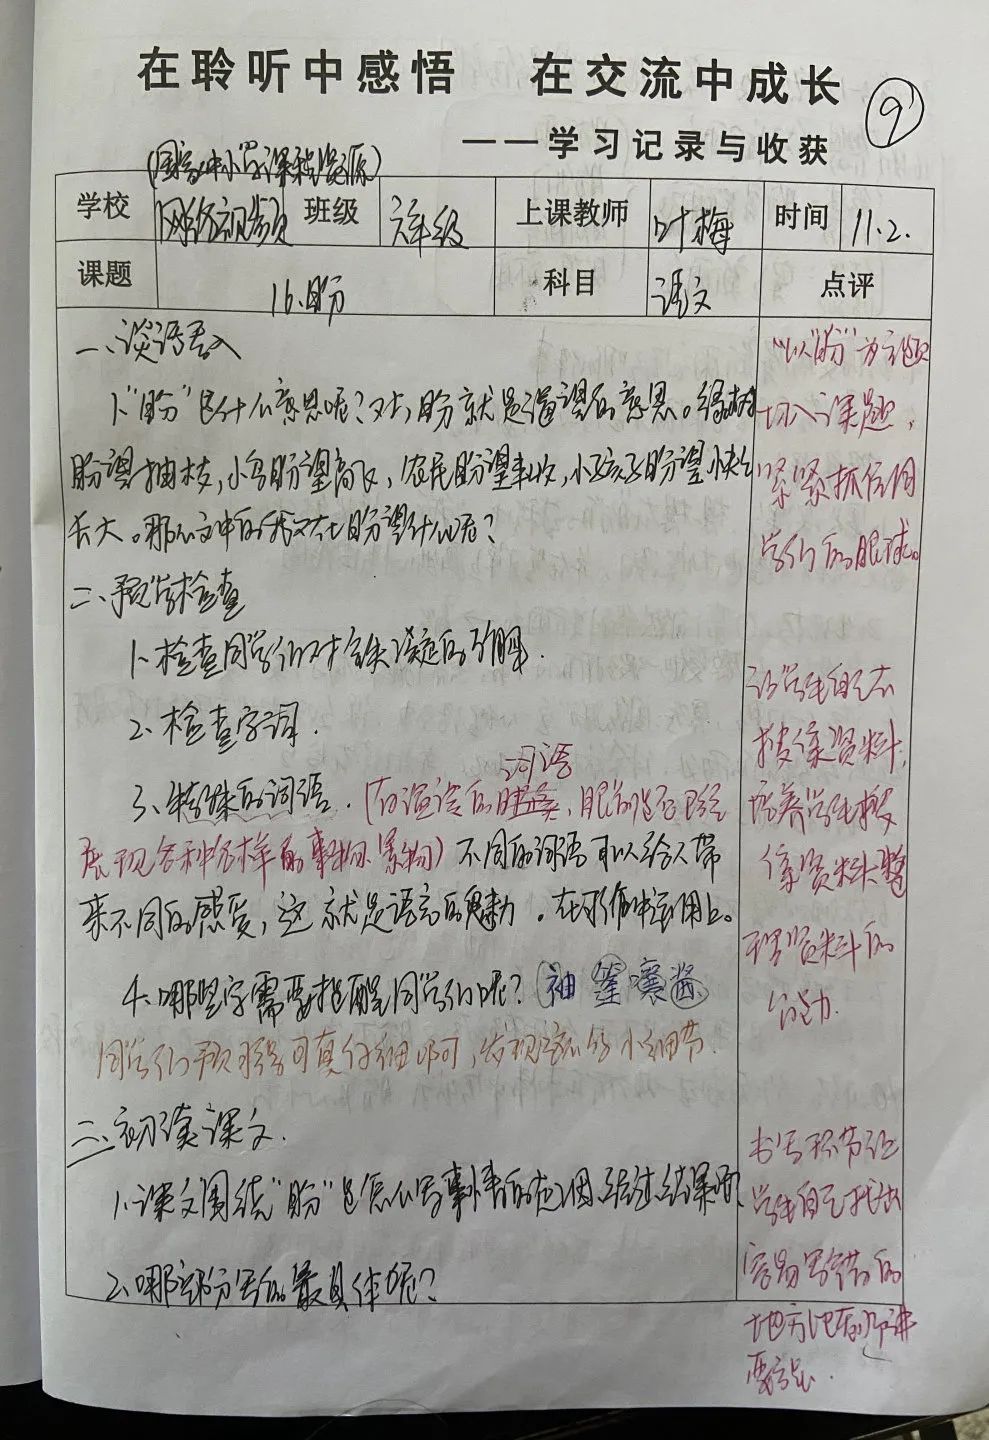 在聆听中感悟 在交流中成长
——学习记录与收获
9
(国家中小学课程资源)
学校 网络视频 班级 六年级 上课教师 叶梅 时间 11.2.
课题 16.盼 科目 语文 点评
一、谈话导入
1、"盼"是什么意思呢？对，盼就是盼望的意思。绿树
盼望抽枝，小鸟盼望高飞，农民盼望丰收，小孩子盼望快快
长大。那么文中的我又在盼望什么呢？
二、预学检查
1、检查同学们对铁凝的了解.
2、检查字词.
3、特殊的词语.(有的词语,眼前是否已经
展现各种各样的事物、景物)不同的词语可以给人带
来不同的感受，这就是语言的魅力.在习作中运用上。
4、哪些字需要提醒同学们呢？袖 篷 嚷 酱
同学们预习得可真仔细啊可,发现这么多小细节.
三、初读课文.
1、课文围绕"盼"是怎么写事情的起因、经过、结果的、
2、哪部分写的最具体呢？
"以"盼"为主题
切入课题，
紧紧抓住同
学们的眼球。
让学生自己去
搜集资料,
培养学生搜
集资料整
理资料的
能力.
书写环节让
学生自己找出
容易写错的
地方